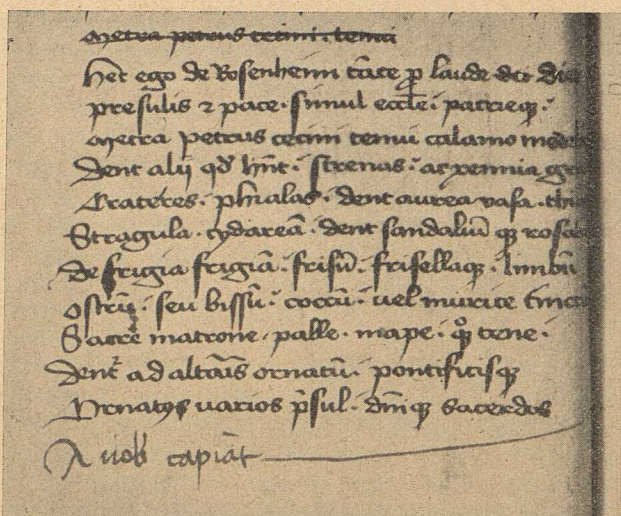 metra petrus cecini. tenui
hec ego de Rosenhenn tate p laude dei
presulis ⁊ pace. simul eccle. patrieqȝ.
metra petrus cecini tenui calamo
Dent alij qd hnt. strenas. ac xennia
Crateres. phialas. dent aurea vasa.
Stragula. cydareā. dent sandaliū qȝ
de frigia frigiā. frisū. frisellaqȝ. limbū
ostrū. seu bissū. coccū. uel murice
Sacre matrone. palle. mape. tene.
Dent ad altais ornatū. pontificisqȝ
Ornatus varios psul. dniqȝ sacerdos
A vob capiāt